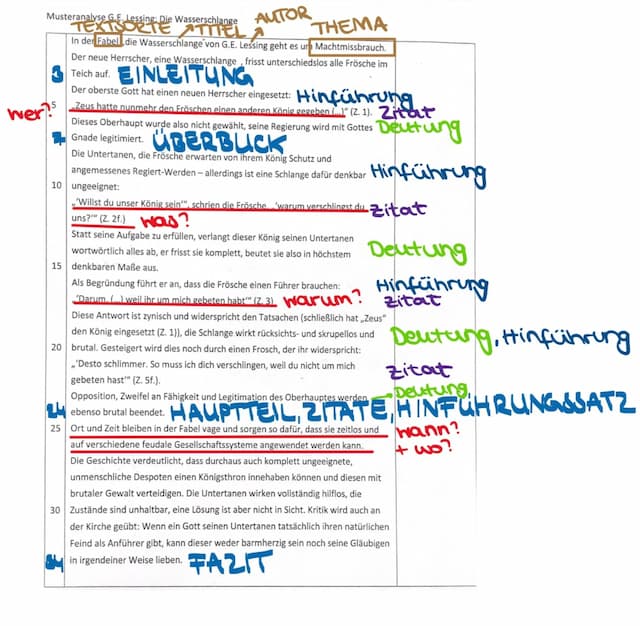 Musteranalyse G.E. Lessing: Die Wasserschlange
TEXTSORTE TITEL AUTOR THEMA
In der Fabel „die Wasserschlange" von G.E. Lessing geht es um Machtmissbrauch.
Der neue Herrscher, eine Wasserschlange , frisst unterschiedslos alle Frösche im
3 Teich auf. EINLEITUNG
Der oberste Gott hat einen neuen Herrscher eingesetzt: Hinführung
wer? 5 „Zeus hatte nunmehr den Fröschen einen anderen König gegeben (...)" (Z. 1). Zitat
Dieses Oberhaupt wurde also nicht gewählt, seine Regierung wird mit Gottes Deutung
7 Gnade legitimiert. ÜBERBLICK
Die Untertanen, die Frösche erwarten von ihrem König Schutz und
angemessenes Regiert-Werden – allerdings ist eine Schlange dafür denkbar Hinführung
10 ungeeignet:
„'Willst du unser König sein'", schrien die Frösche, „'warum verschlingst du Zitat
uns?'" (Z. 2f.) was?
Statt seine Aufgabe zu erfüllen, verlangt dieser König seinen Untertanen
wortwörtlich alles ab, er frisst sie komplett, beutet sie also in höchstem Deutung
15 denkbaren Maße aus.
Als Begründung führt er an, dass die Frösche einen Führer brauchen: Hinführung
„'Darum, (...) weil ihr um mich gebeten habt'" (Z. 3) warum? Zitat
Diese Antwort ist zynisch und widerspricht den Tatsachen (schließlich hat „Zeus"
den König eingesetzt (Z. 1)), die Schlange wirkt rücksichts- und skrupellos und Deutung, Hinführung
20 brutal. Gesteigert wird dies noch durch einen Frosch, der ihr widerspricht:
„'Desto schlimmer. So muss ich dich verschlingen, weil du nicht um mich Zitat
gebeten hast'" (Z. 5f.).
Opposition, Zweifel an Fähigkeit und Legitimation des Oberhauptes werden Deutung
24 ebenso brutal beendet. HAUPTTEIL, ZITATE, HINFÜHRUNGSSATZ
25 Ort und Zeit bleiben in der Fabel vage und sorgen so dafür, dass sie zeitlos und wann?
auf verschiedene feudale Gesellschaftssysteme angewendet werden kann. + wo?
Die Geschichte verdeutlicht, dass durchaus auch komplett ungeeignete,
unmenschliche Despoten einen Königsthron innehaben können und diesen mit
brutaler Gewalt verteidigen. Die Untertanen wirken vollständig hilflos, die
30 Zustände sind unhaltbar, eine Lösung ist aber nicht in Sicht. Kritik wird auch an
der Kirche geübt: Wenn ein Gott seinen Untertanen tatsächlich ihren natürlichen
Feind als Anführer gibt, kann dieser weder barmherzig sein noch seine Gläubigen
in irgendeiner Weise lieben. FAZIT